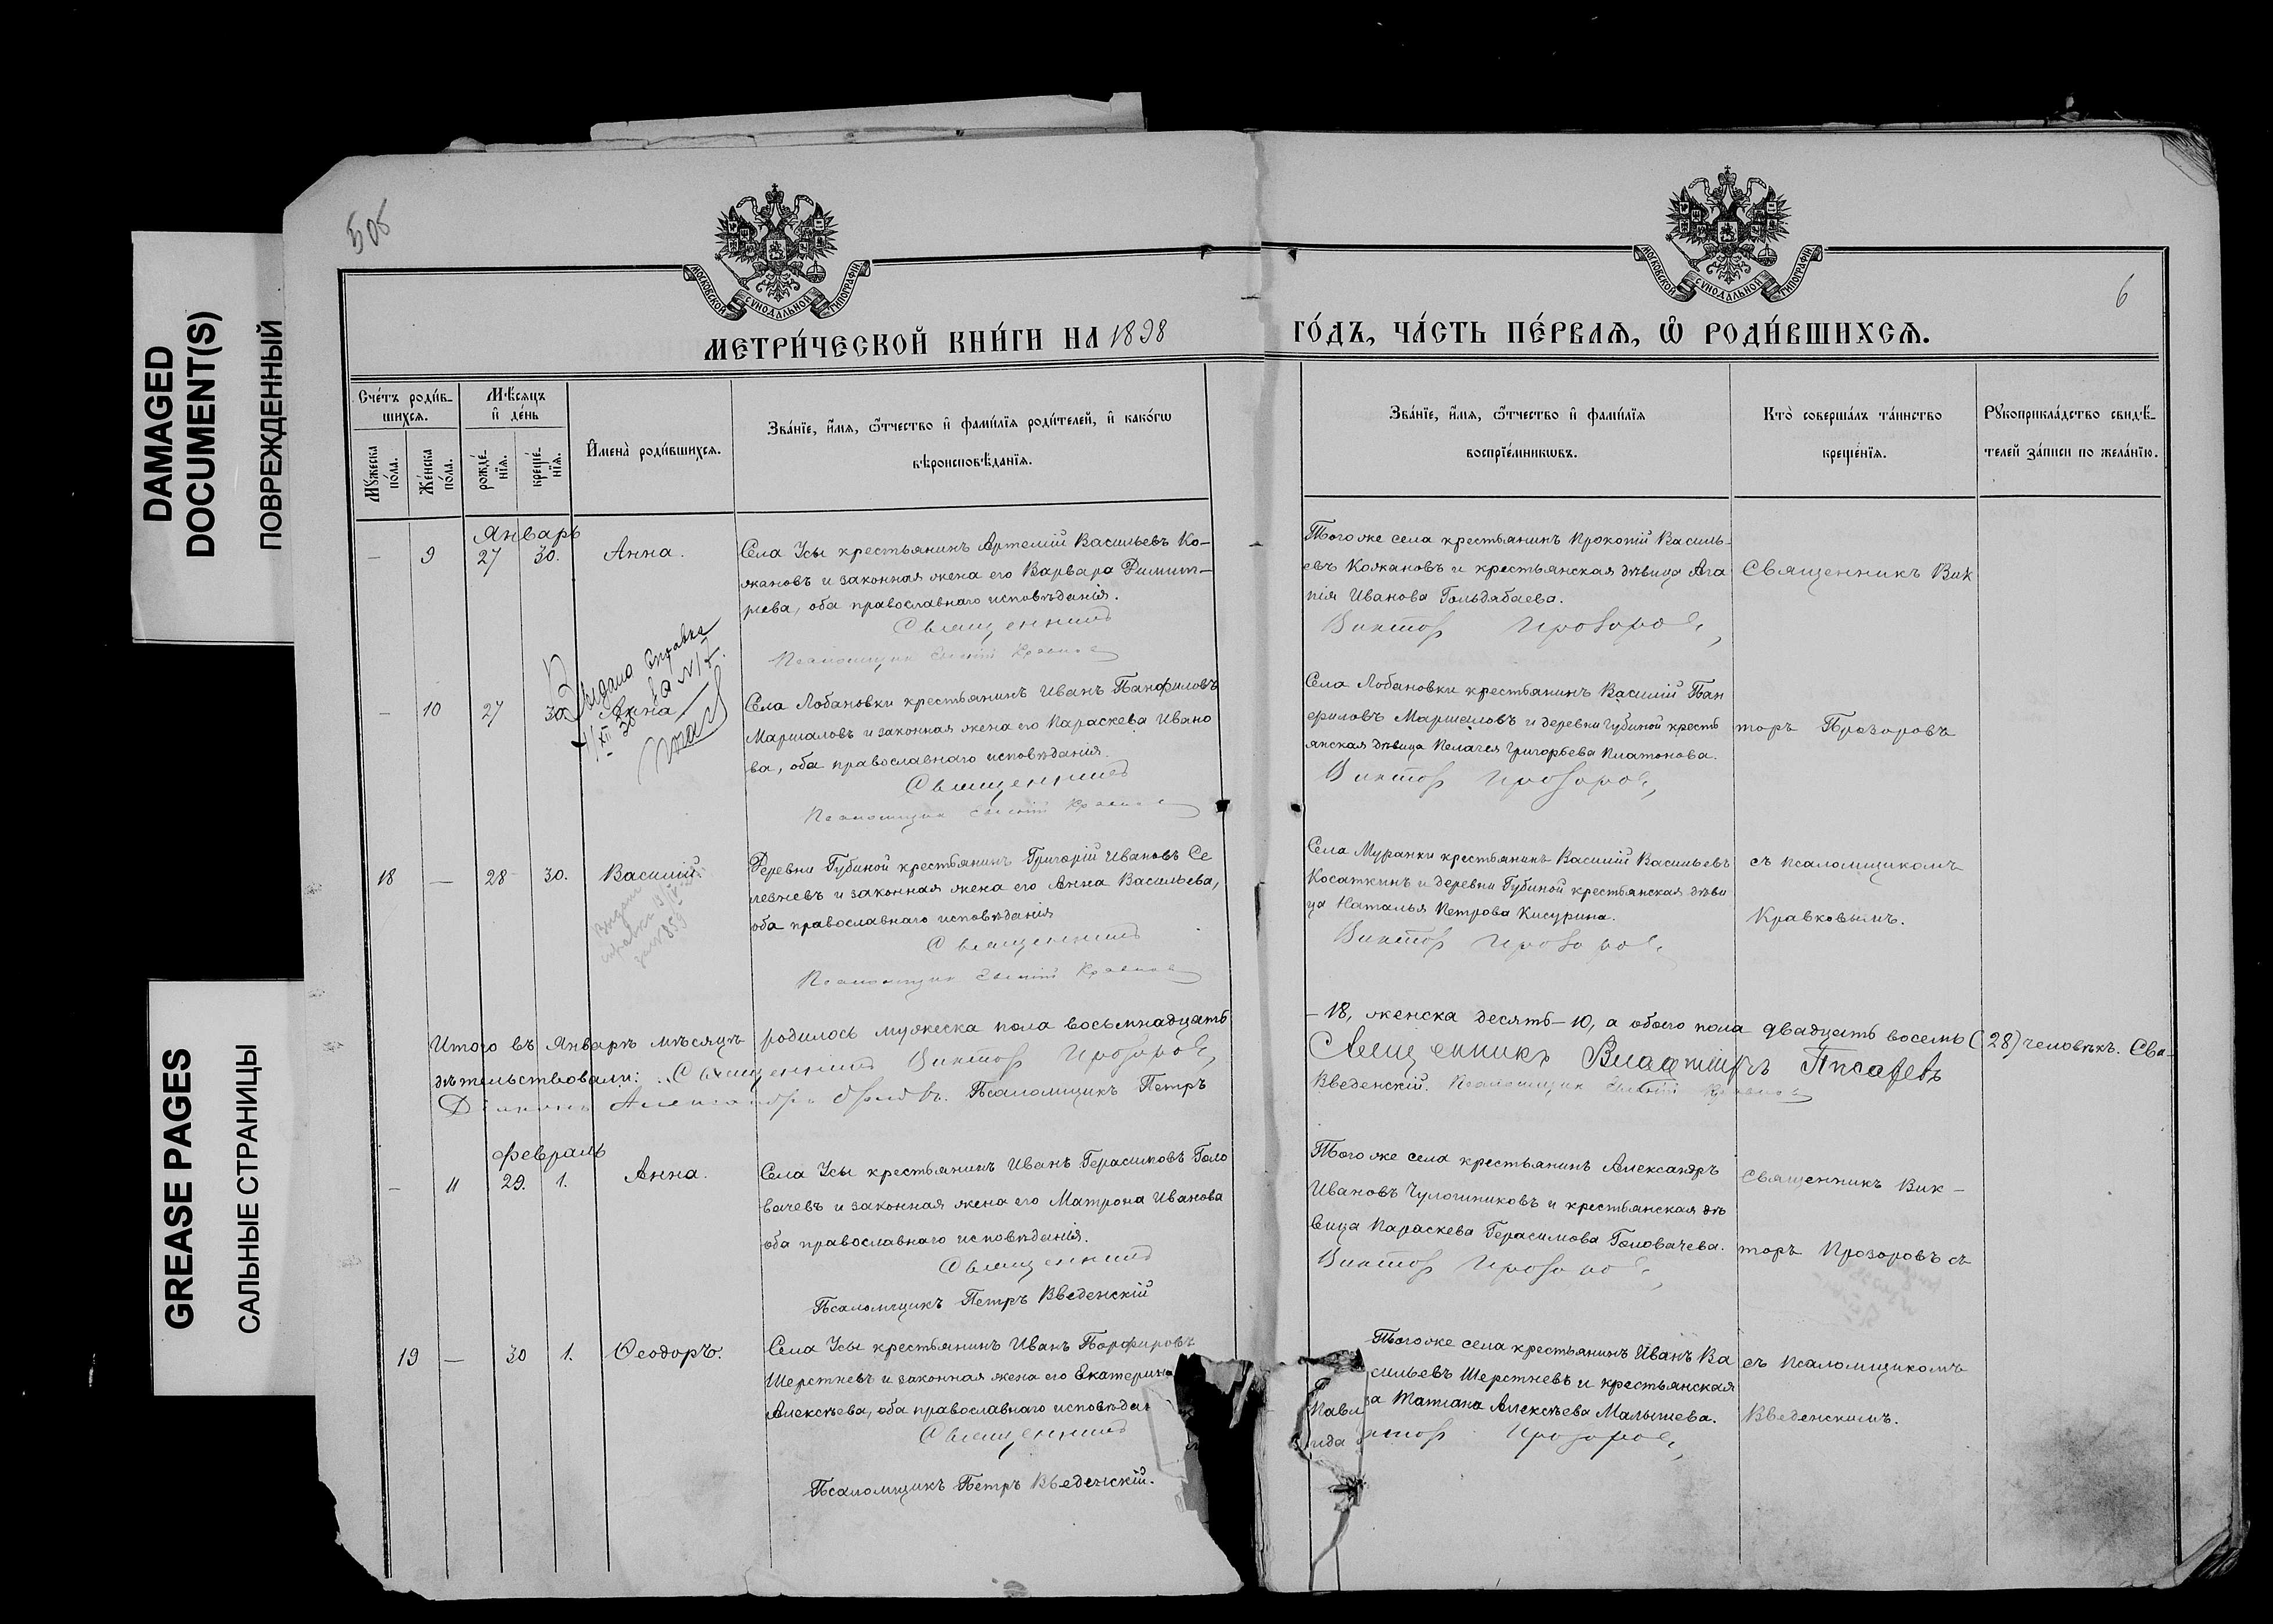 DAMAGED
DOCUMENT(S)
ПОВРЕЖДЕННЫЙ
GREASE PAGES
САЛЬНЫЕ СТРАНИЦЫ
505
6
МОСКОВСКОЙ СУНОДАЛЬНОЙ ТИПОГРАФІИ
МОСКОВСКОЙ СУНОДАЛЬНОЙ ТИПОГРАФІИ
МЕТРИ́ЧЕСКОЙ КНИ́ГИ НА 1898 ГО́ДЪ, ЧА́СТЬ ПЕ́РВАѦ, Ѡ҆ РОДИ́ВШИХСѦ.
Сче́тъ роди́в-
шихсѧ.
Мꙋ́жеска
по́ла.
Же́нска
по́ла.
Мѣ́сѧцъ
и҆ де́нь
рожде́-
нїѧ.
креще́-
нїѧ.
И҆мена̀ роди́вшихсѧ.
Зва́нїе, и҆́мѧ, ѻ҆́тчество и҆ фами́лїѧ роди́телей, и҆ како́гѡ
вѣроисповѣ́данїѧ.
Зва́нїе, и҆́мѧ, ѻ҆́тчество и҆ фами́лїѧ
воспрїе́мникѡвъ.
Кто̀ соверша́лъ та́инство
креще́нїѧ.
Рꙋкоприкла́дство свидѣ́-
телей за́писи по жела́нїю.
Январь
— 9 27 30. Анна.
Села Усы крестьянинъ Артемій Васильевъ Ко-
жановъ и законная жена его Варвара Димит-
ріева, оба православнаго исповѣданія.
Священникъ
Псаломщик Евгеній Кравков
Тогоже села крестьянинъ Прокопій Василь-
евъ Кожановъ и крестьянская дѣвица Ага
пія Иванова Гольдябаева.
Виктор Прозоров,
Священникъ Вик
Выдана справка
за № 17.
— 10 27 30. Анна
Села Лобановки крестьянинъ Иванъ Панфиловъ
Маршаловъ и законная жена его Параскева Ивано
ва, оба православнаго исповѣданія.
Священникъ
Псаломщик Евгеній Кравков
Села Лобановки крестьянинъ Василій Пан
филовъ Маршаловъ и деревни Губиной кресть
янская дѣвица Пелагея Григорьева Платонова.
Виктор Прозоров,
торъ Прозоровъ
18 — 28 30. Василій.
Выдана
справка
за № 859
Деревни Губиной крестьянинъ Григорій Ивановъ Се
лезневъ и законная жена его Анна Васильева,
оба православнаго исповѣданія
Священникъ
Псаломщик Евгеній Кравков
Села Муранки крестьянинъ Василій Васильевъ
Косаткинъ и деревни Губиной крестьянская дѣви
ца Наталья Петрова Кисурина.
Виктор Прозоров,
съ псаломщикомъ
Кравковымъ.
Итого въ Январѣ мѣсяцѣ родилось мужеска пола восьмнадцать — 18, женска десять — 10, а обоего пола двадцать восемь (28) человѣкъ. Сви-
дѣтельствовали: Священникъ Виктор Прозоров, Священникъ Владиміръ Писаревъ
Діаконъ Александръ Орловъ. Псаломщикъ Петръ Введенскій. Псаломщик Евгеній Кравков
Февраль
— 11 29. 1. Анна.
Села Усы крестьянинъ Иванъ Герасимовъ Голо
вачевъ и законная жена его Матрона Иванова
оба православнаго исповѣданія.
Священникъ
Псаломщикъ Петръ Введенскій
Тогоже села крестьянинъ Александръ
Ивановъ Чулошниковъ и крестьянская дѣ
вица Параскева Герасимова Головачева.
Виктор Прозоров,
Священникъ Вик-
торъ Прозоровъ съ
19 — 30 1. Ѳеодоръ.
Села Усы крестьянинъ Иванъ Порфировъ
Шерстневъ и законная жена его Екатерина
Алексѣева, оба православнаго исповѣдан
Священникъ
Псаломщикъ Петръ Введенскій.
Тогоже села крестьянинъ Иванъ Ва
сильевъ Шерстневъ и крестьянская
ца Татіана Алексѣева Малышева.
Павл
ктор Прозоров,
съ псаломщикомъ
Введенскимъ.